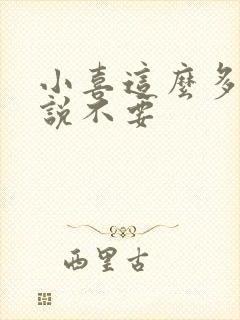 小喜這麼多
說不要
西里古